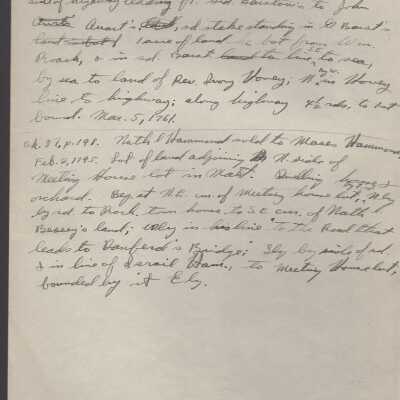 side of highway leading fr. sd. Barstow's to John
Avart's, sd. stake standing in
1 acre of land he bot from Wm.
Roach, & in sd. line, to sea,
by sea to land of Rev. Ivory Hovey; N. in Hovey
line to highway; along highway rds. to 1st
bound. Mar. 5, 1761.
Bk. 86, p. 198. Nath'l Hammond sold to Moses Hammond,
Feb. 2, 1795. Lot of land adjoining N. side of
Meeting House lot in Matt. Dwelling house &
orchard. Beg. at N.E. cor. of Meeting house lot, N'ly
by rd. to Stock. town house, to S.E. cor. of Nath'l
Bessey's land; W'ly in line to the Road that
leads to Danford's Bridge; S'ly by side of rd.
& in line of Ham., to Meeting House lot,
bounded by it E'ly.